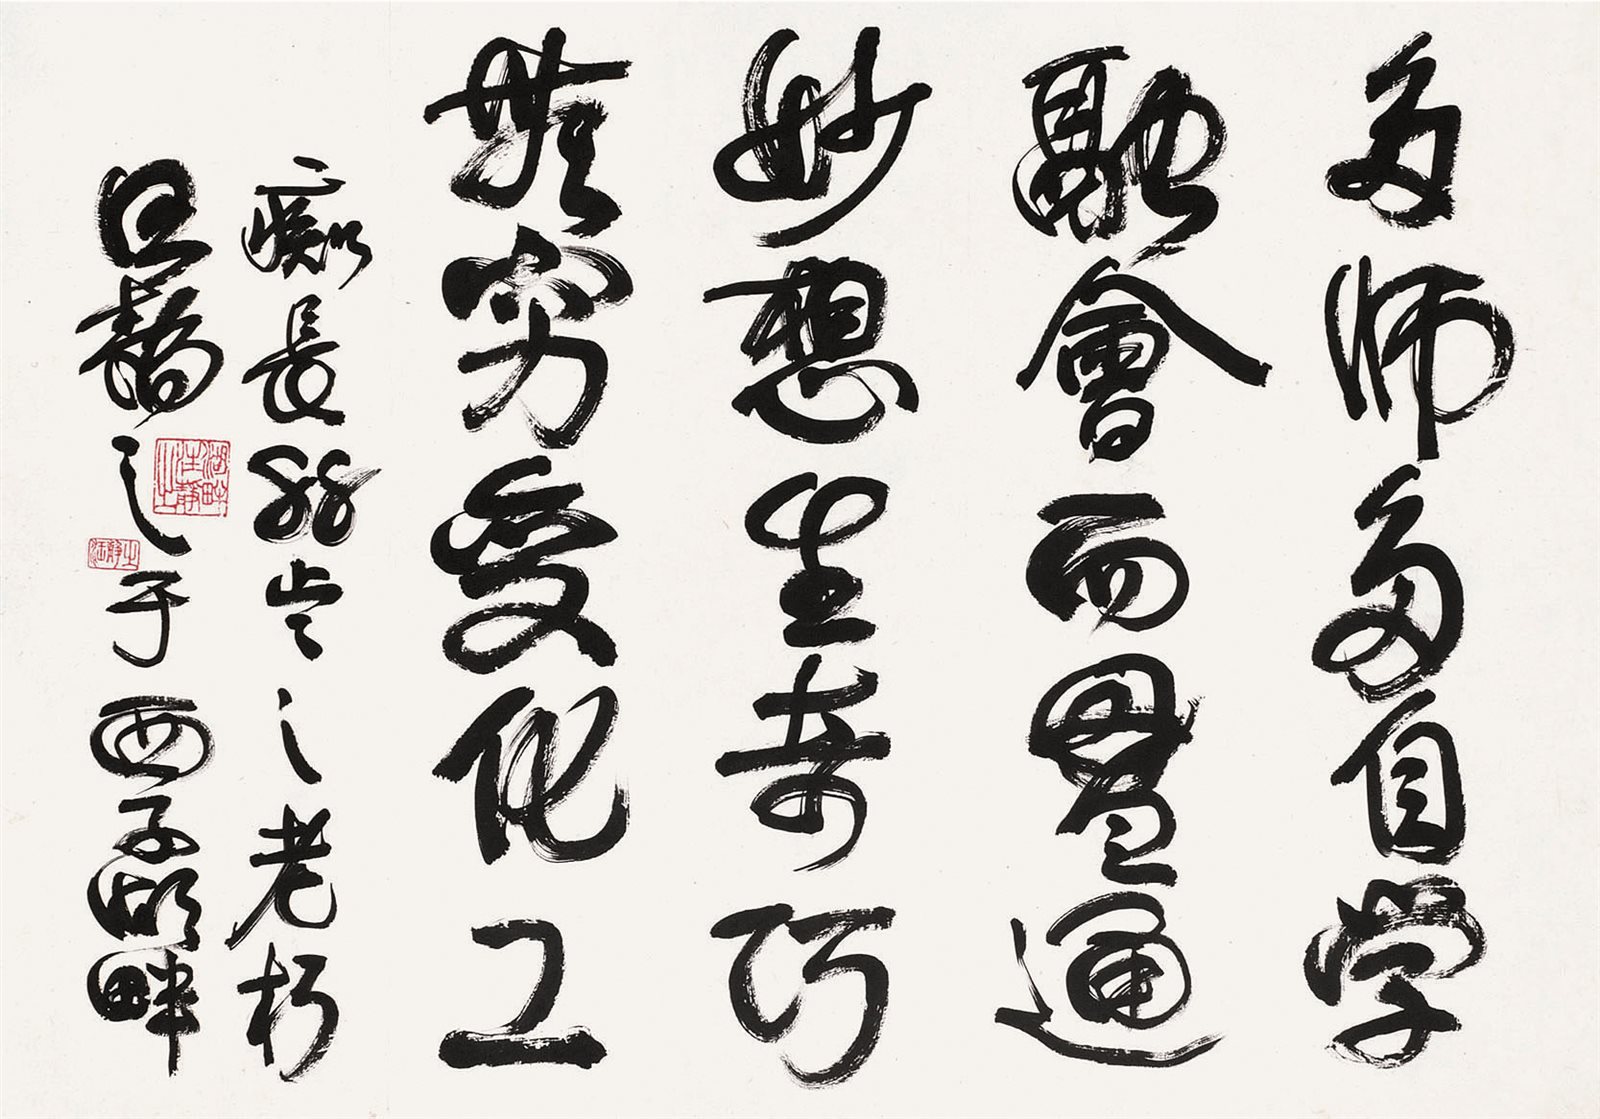 多师多自学
融會而貫通
妙想生奇巧
無穷变化工
癡長岁之老朽
汪静之于西子湖畔
汪靜之